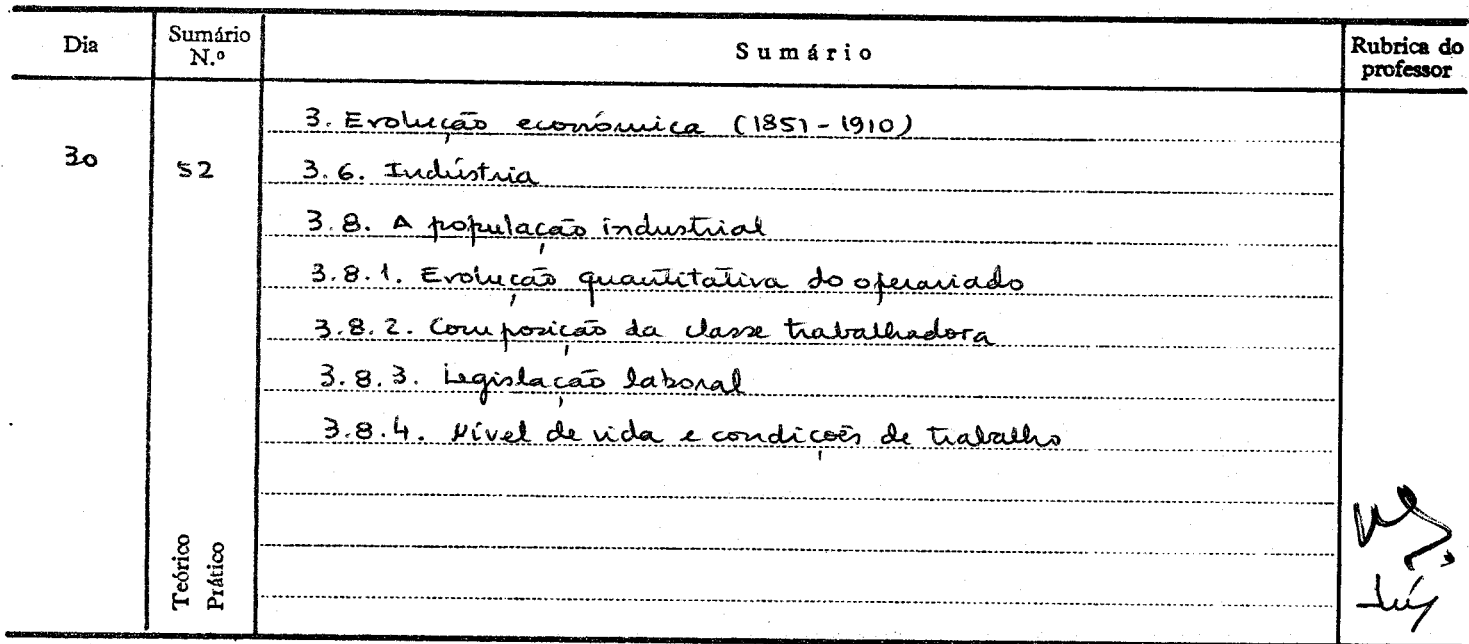 Dia Sumário N.º Sumário Rubrica do professor
3. Evolução económica (1851-1910)
30 52 3.6. Indústria
3.8. A população industrial
3.8.1. Evolução quantitativa do operariado
3.8.2. Composição da classe trabalhadora
3.8.3. Legislação laboral
3.8.4. Nível de vida e condições de trabalho
Teórico
Prático